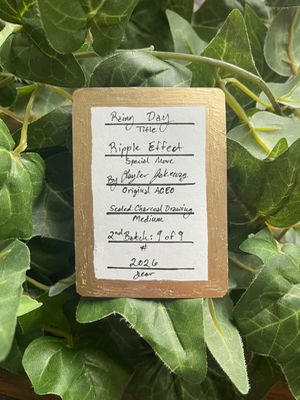 Rainy Day
Title
Ripple Effect
Special Move
By
Original ACEO
Sealed Charcoal Drawing
Medium
2nd Batch: 9 of 9
#
2026
year